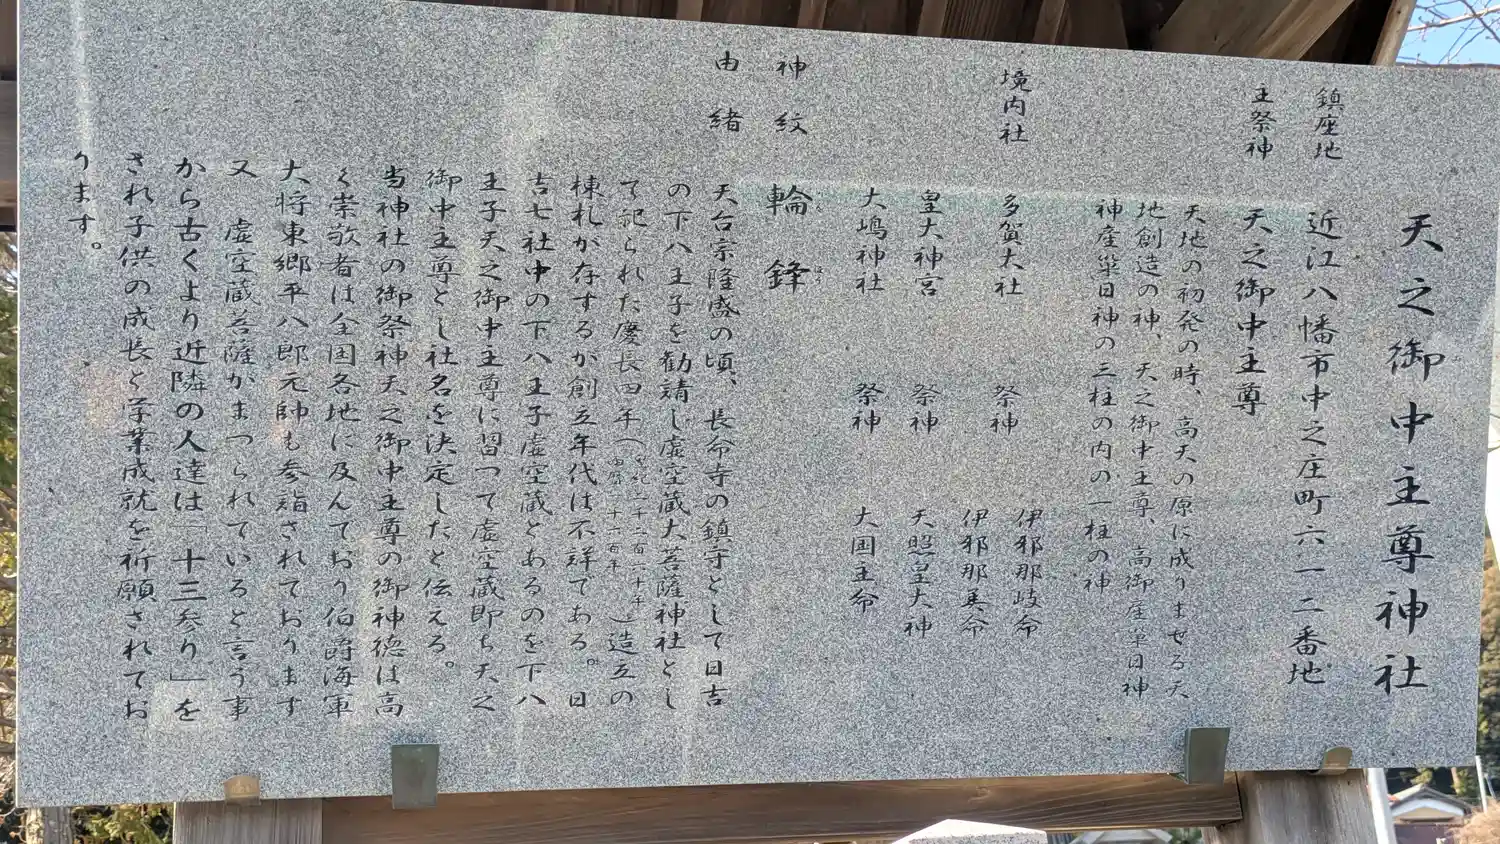 天之御中主尊神社
鎮座地 近江八幡市中之庄町六一二番地
主祭神 天之御中主尊
天地の初発の時、高天の原に成りませる天
地創造の神、天之御中主尊、高御産巣日神
神産巣日神の三柱の内の一柱の神
境内社 多賀大社 祭神 伊邪那岐命
伊邪那美命
皇大神宮 祭神 天照皇大神
大嶋神社 祭神 大国主命
神紋 輪鋒
由緒 天台宗隆盛の頃、長命寺の鎮守として日吉
の下八王子を勧請し虚空蔵大菩薩神社とし
て記られた慶長四年()造立の
棟札が存するが創立年代は不詳である。日
吉七社中の下八王子虚空蔵とあるのを下八
王子天之御中主尊に習って虚空蔵即ち天之
御中主尊とし社名を決定したと伝える。
当神社の御祭神天之御中主尊の御神徳は高
く崇敬者は全国各地に及んでおり伯爵海軍
大将東郷平八郎元帥も参詣されております
又 虚空蔵菩薩がまつられていると言う事
から古くより近隣の人達は「十三参り」を
され子供の成長と学業成就を祈願されてお
ります。